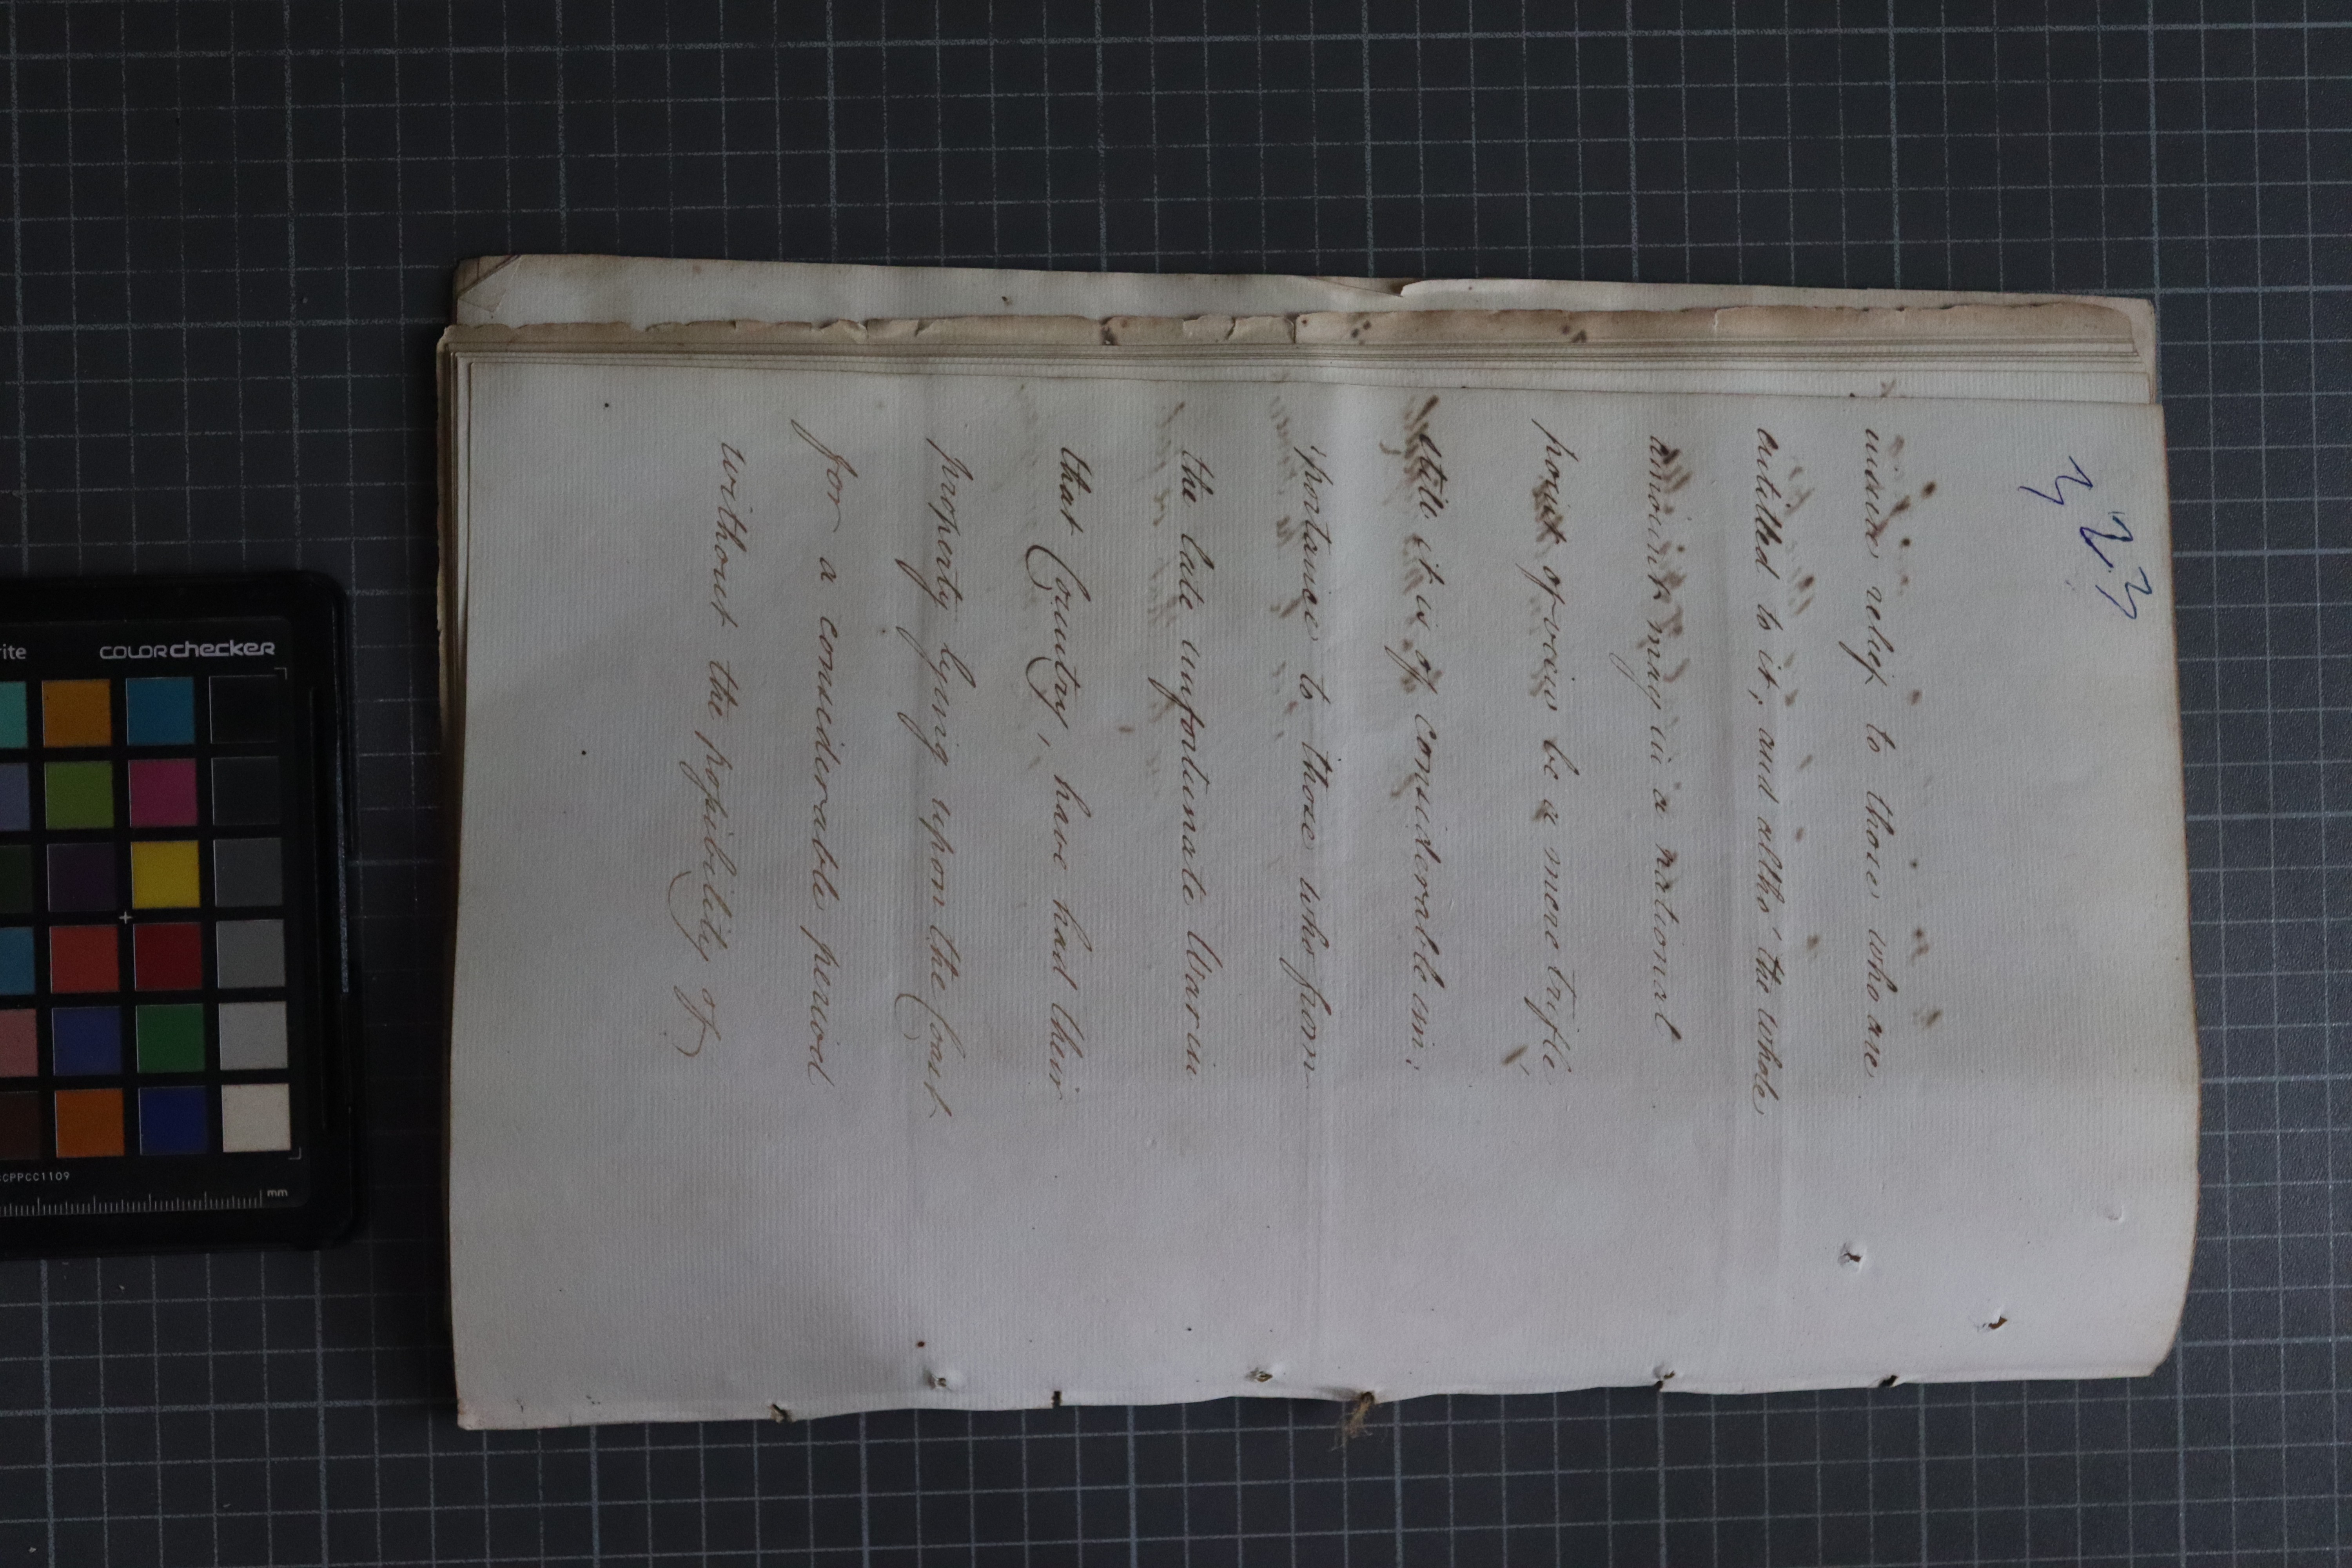 such relief to those who are
entitled to it; and altho' the whole
amount may in a national
point of view be a mere trifle
still it is of considerable im:
:portance to those who from
the late unfortunate War in
that Country, have had their
property lying upon the Coast
for a considerable period
without the possibility of
COLORchecker
CCPPCC1109
mm